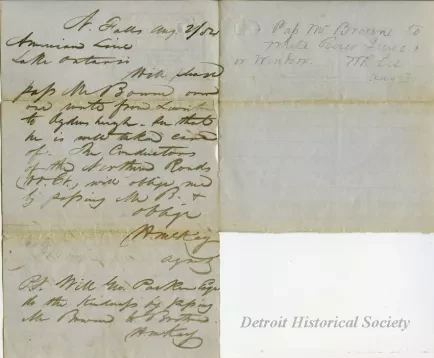 N. Falls Aug 2/52
American Line
Lake Ontario
Will please
pass Mr Browne over
our route from Lewist
to Ogdensburgh. See that
he is well taken care
of. The Conductors
of the Northern Roads
will oblige me
by passing Mr B. &
oblige
H McKay
agent
PS. Will Geo. Parker
do the kindness by passing
Mr Browne to Boston.
HMcKay
Pass Mr Browne to
White
or
Detroit Historical Society